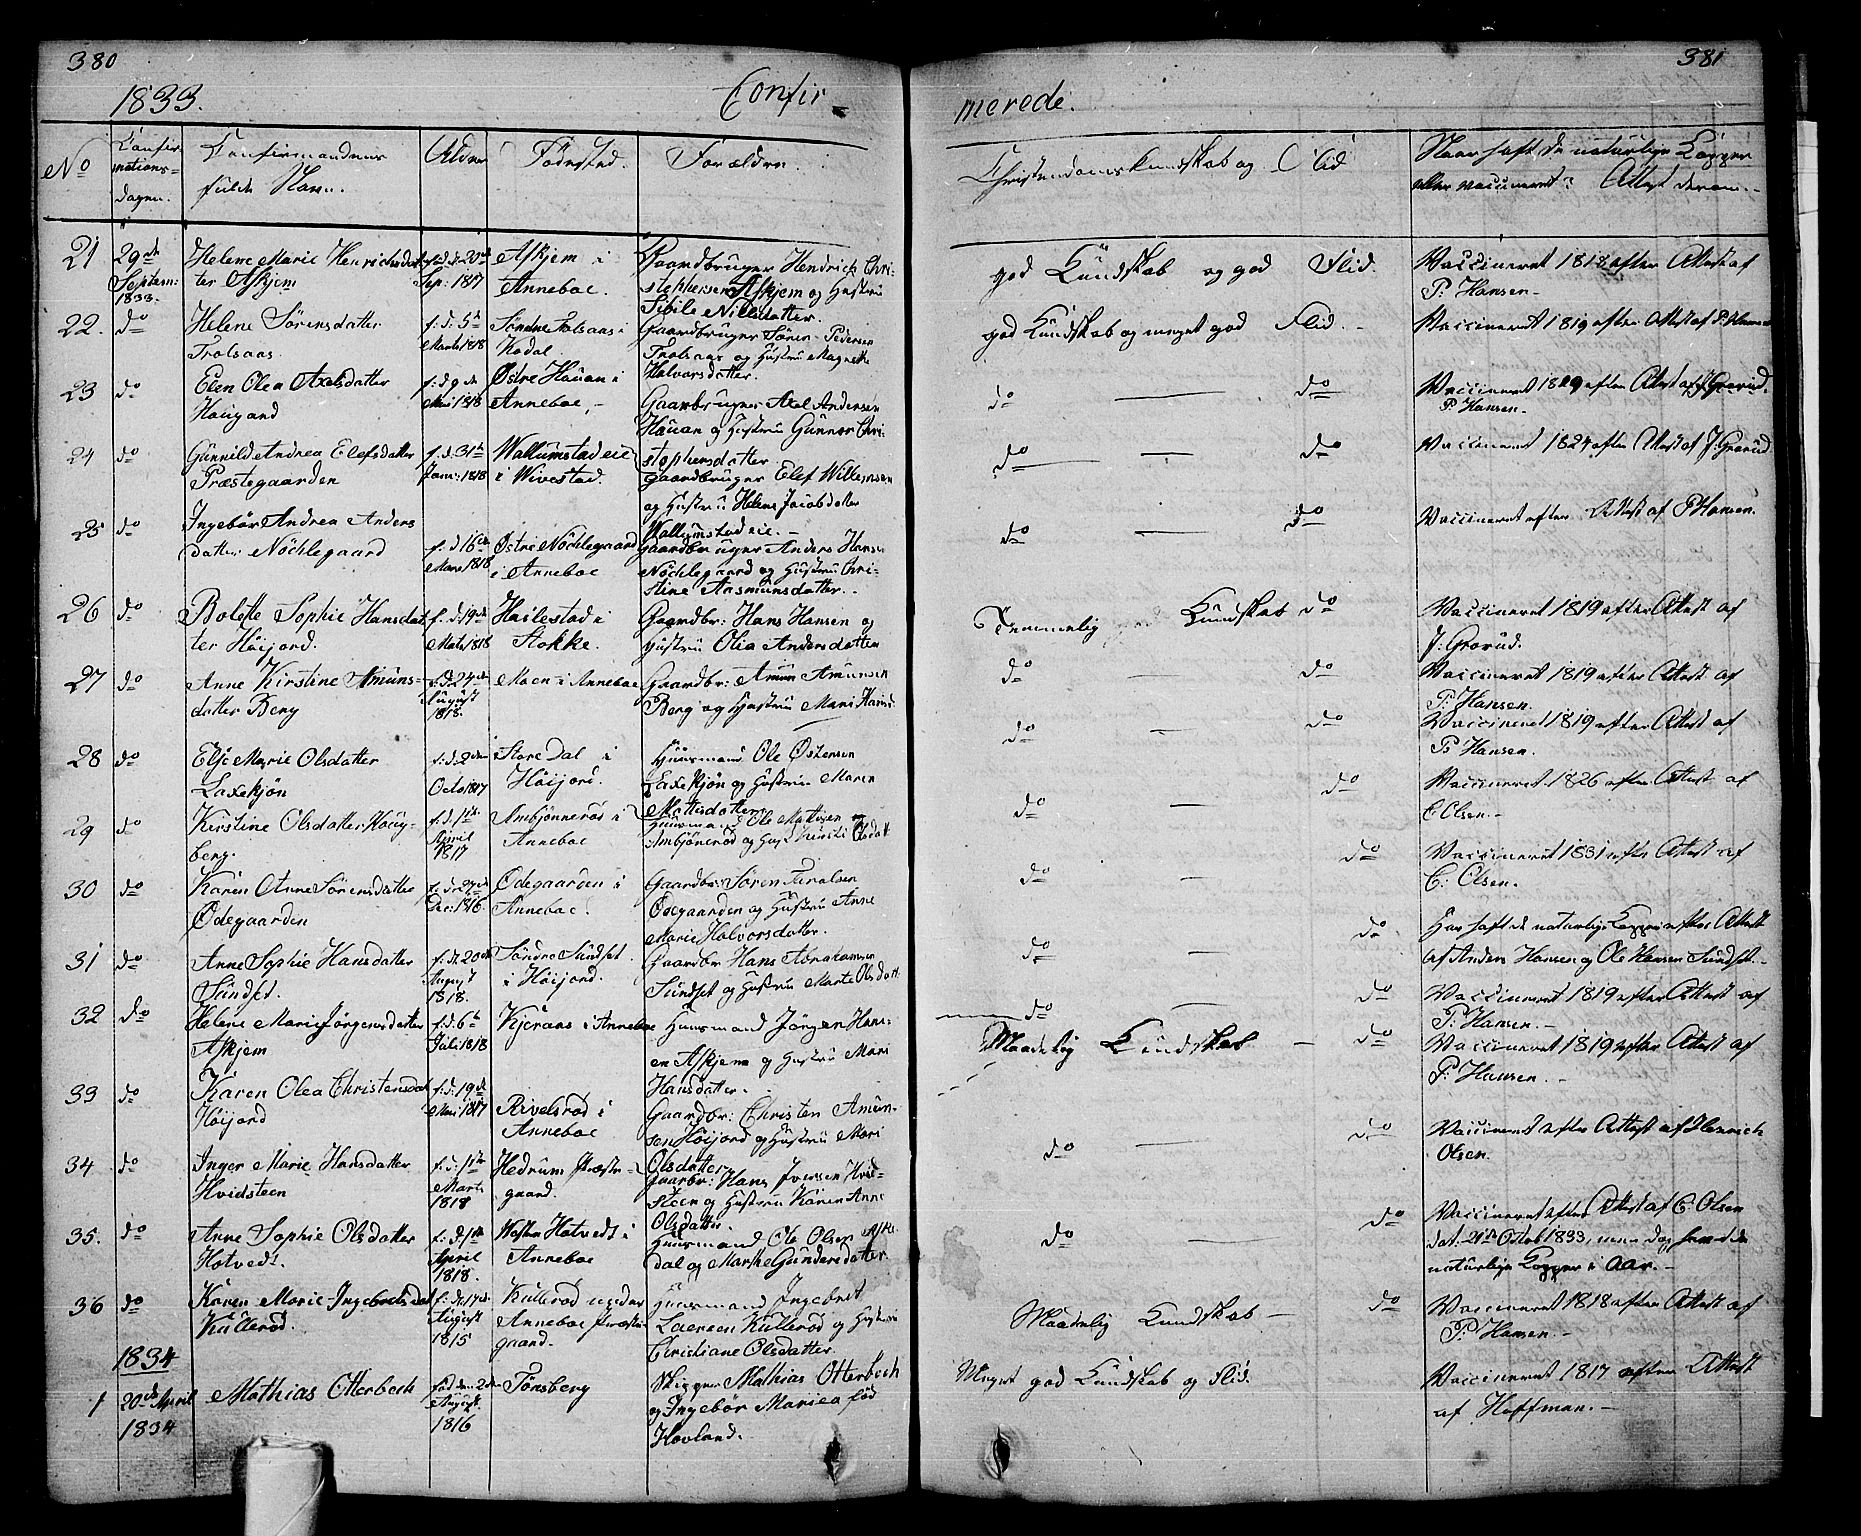 380
1833.
Confir-
No
Confir-
mations-
dagen.
Confirmandens
fulde Navn.
Alder
Födested.
Forældre.
21
29de
Septem:
1833.
Helene Marie Henrichsdat-
ter Askjem
f. d. 20de
Sep: 1817
Askjem i
Anneboe.
Gaardbruger Hendrich Chri-
stophersen Askjem og Hustru
Sibile Nilsdatter.
22.
do
Helene Sörensdatter
Trolsaas.
f: d: 5te
Marts 1818
Söndre Trolsaas i
Kodal
Gaardbruger Sören Pedersen
Trolsaas og Hustru Magnethe
Halvorsdatter.
23
do
Elen Olea Axelsdatter
Haugaard
f: d 9de
Mai 1818
Östre Hauan i
Anneboe.
Gaardbruger Axel Andersen
Hauan og Hustru Gunnor Chri-
stophersdatter
24
do
Gunnild Andrea Elefsdatter
Præstegaarden
f. d. 31te
Janu: 1818
Wallumstad eie
i Wivestad.
Gaardbruger Elef Wilhemsen
og Hustru Helene Jacobdatter
Wallumstad eie.
25
do
Ingebor Andrea Anders
datter Nöchlegaard
f. d. 16de
Mars 1818
Östre Nöchlegaard
i Anneboe
Gaardbruger Anders Hansen
Nöchlegaard og Hustru Chri-
stine Aasmunsdatter.
26
do
Bolette Sophie Hansdat
ter Höijord.
f. d. 19de
Marts 1818
Hailestad i
Stokke.
Gaardbr: Hans Hansen og
Hustru Olia Andersdatter
27
do
Anne Kirstine Amuns-
datter Berg
f. d. 24de
August
1818.
Moen i Anneboe
Gaardbr: Amun Amunsen
Berg og Hustru Mari Harisd.
28
do
Else Marie Olsdatter
Laxekjön
f. d. 2den
Octo 1817
Store Dal i
Höijord.
Huusmand Ole Östensen
Laxekjön og Hustru Maren
Mattisdatter
29
do
Kirstine Olsdatter Haug-
berg.
f. d. 1te
April
1817
Ambjönneröd i
Anneboe
Huusmand Ole Mattisen og
Ambjöneröd og Hus Kirsti Olsdatt
30
do
Karen Anne Sörensdatter
Ödegaarden
f. d. 27de
Dec: 1816.
Ödegaarden i
Anneboe.
Gaardbr: Sören
Ödegaarden og Hustru Anne
Marie Halvorsdatter.
31
do
Anne Sophie Hansdatter
Sundset.
f: d. 20de
August
1818.
Söndre Sundset
i Höijord.
Gaardbr Hans Abrahamsen
Sundset og Hustru Marte Olsdatt.
32
do
Helene Marie Jörgensdatter
Askjem
f. d. 6te
Juli 1818
Kjeraas i Anneboe
Huusmand Jörgen Hans-
en Askjem og Hustru Mari
Hansdatter.
33
do
Karen Olea Christensdat
Höijord
f. d. 19de
Mai 1817
Rivelsröd i
Anneboe
Gaardbr: Christen Amun-
sen Höijord og Hustru Mari
Olsdatter
34
do
Inger Marie Hansdatter
Hvidsteen
f. d. 1te
Marts
1818
Hedrum Præste-
gaard.
Gaardbr: Hans Iversen Hvid-
steen og Hustru Karen Anne
Olsdatter.
35.
do
Anne Sophie Olsdatter
Hotvedt.
f: d. 1te
April
1818.
Westen Hotvedt i
Anneboe
Huusmand Ole Olsen
dal og Marthe Gundersdatter
36
do
Karen Marie Ingebretsdat
Kulleröd.
f: d. 17de
August
1815
Kulleröd under
Anneboe Præste-
gaard.
Huusmand Ingebret
Laersen Kulleröd og Hustru
Christiane Olsdatter
1834
1
20de April
1834
Mathias Otterbech
föd den 2den
August
1816
Tönsberg
Skipper Mathias Otterbech
og Ingebor Mariea föd
Hovland.
381
merede.
Christendomskundskab og Flid
Naar haft de naturlige Kopper
eller vaccineret? Attest derom.
god Kundskab og god Flid.
Vaccineret 1818 efter Attest af
P: Hansen
god Kundskab og meget god Flid.
Vaccineret 1819 efter Attest af P. Hansen
do — do
Vaccineret 1819 efter Attest af J Grorud.
P. Hansen.
do — do
Vaccineret 1824 efter Attest af J. Grorud
do — do
Vaccineret efter Attest af P Hansen.
Temmelig Kundskab do
Vaccineret 1819 efter Attest af
J. Grorud.
do — do
Vaccineret 1819 efter Attest af
P. Hansen.
do — do
Vaccineret 1819 efter Attest af
P. Hansen.
do — do
Vaccineret 1826 efter Attest af
C Olsen.
do — do
Vaccineret 1831 efter Attest af
C: Olsen.
do — do
Har haft de naturlige Kopper efter Attest
af Anders Hansen og Ole Hansen Sundset.
do — do
Vaccineret 1819 efter Attest af
P. Hansen.
Maadelig Kundskab — do
Vaccineret 1819 efter Attest af
P. Hansen.
do — do
Vaccineret efter Attest af Henrich
Olsen.
do — do
Vaccineret efter Attest af C. Olsen
dat: 21de Octob 1833, men dog havd de
naturlige Kopper i Aar.
Maadelig Kundskab — do
Vaccineret 1818 efter Attest af
P: Hansen.
Meget god Kundskab og Flid.
Vaccineret 1817 efter Attest
af Hoffman.